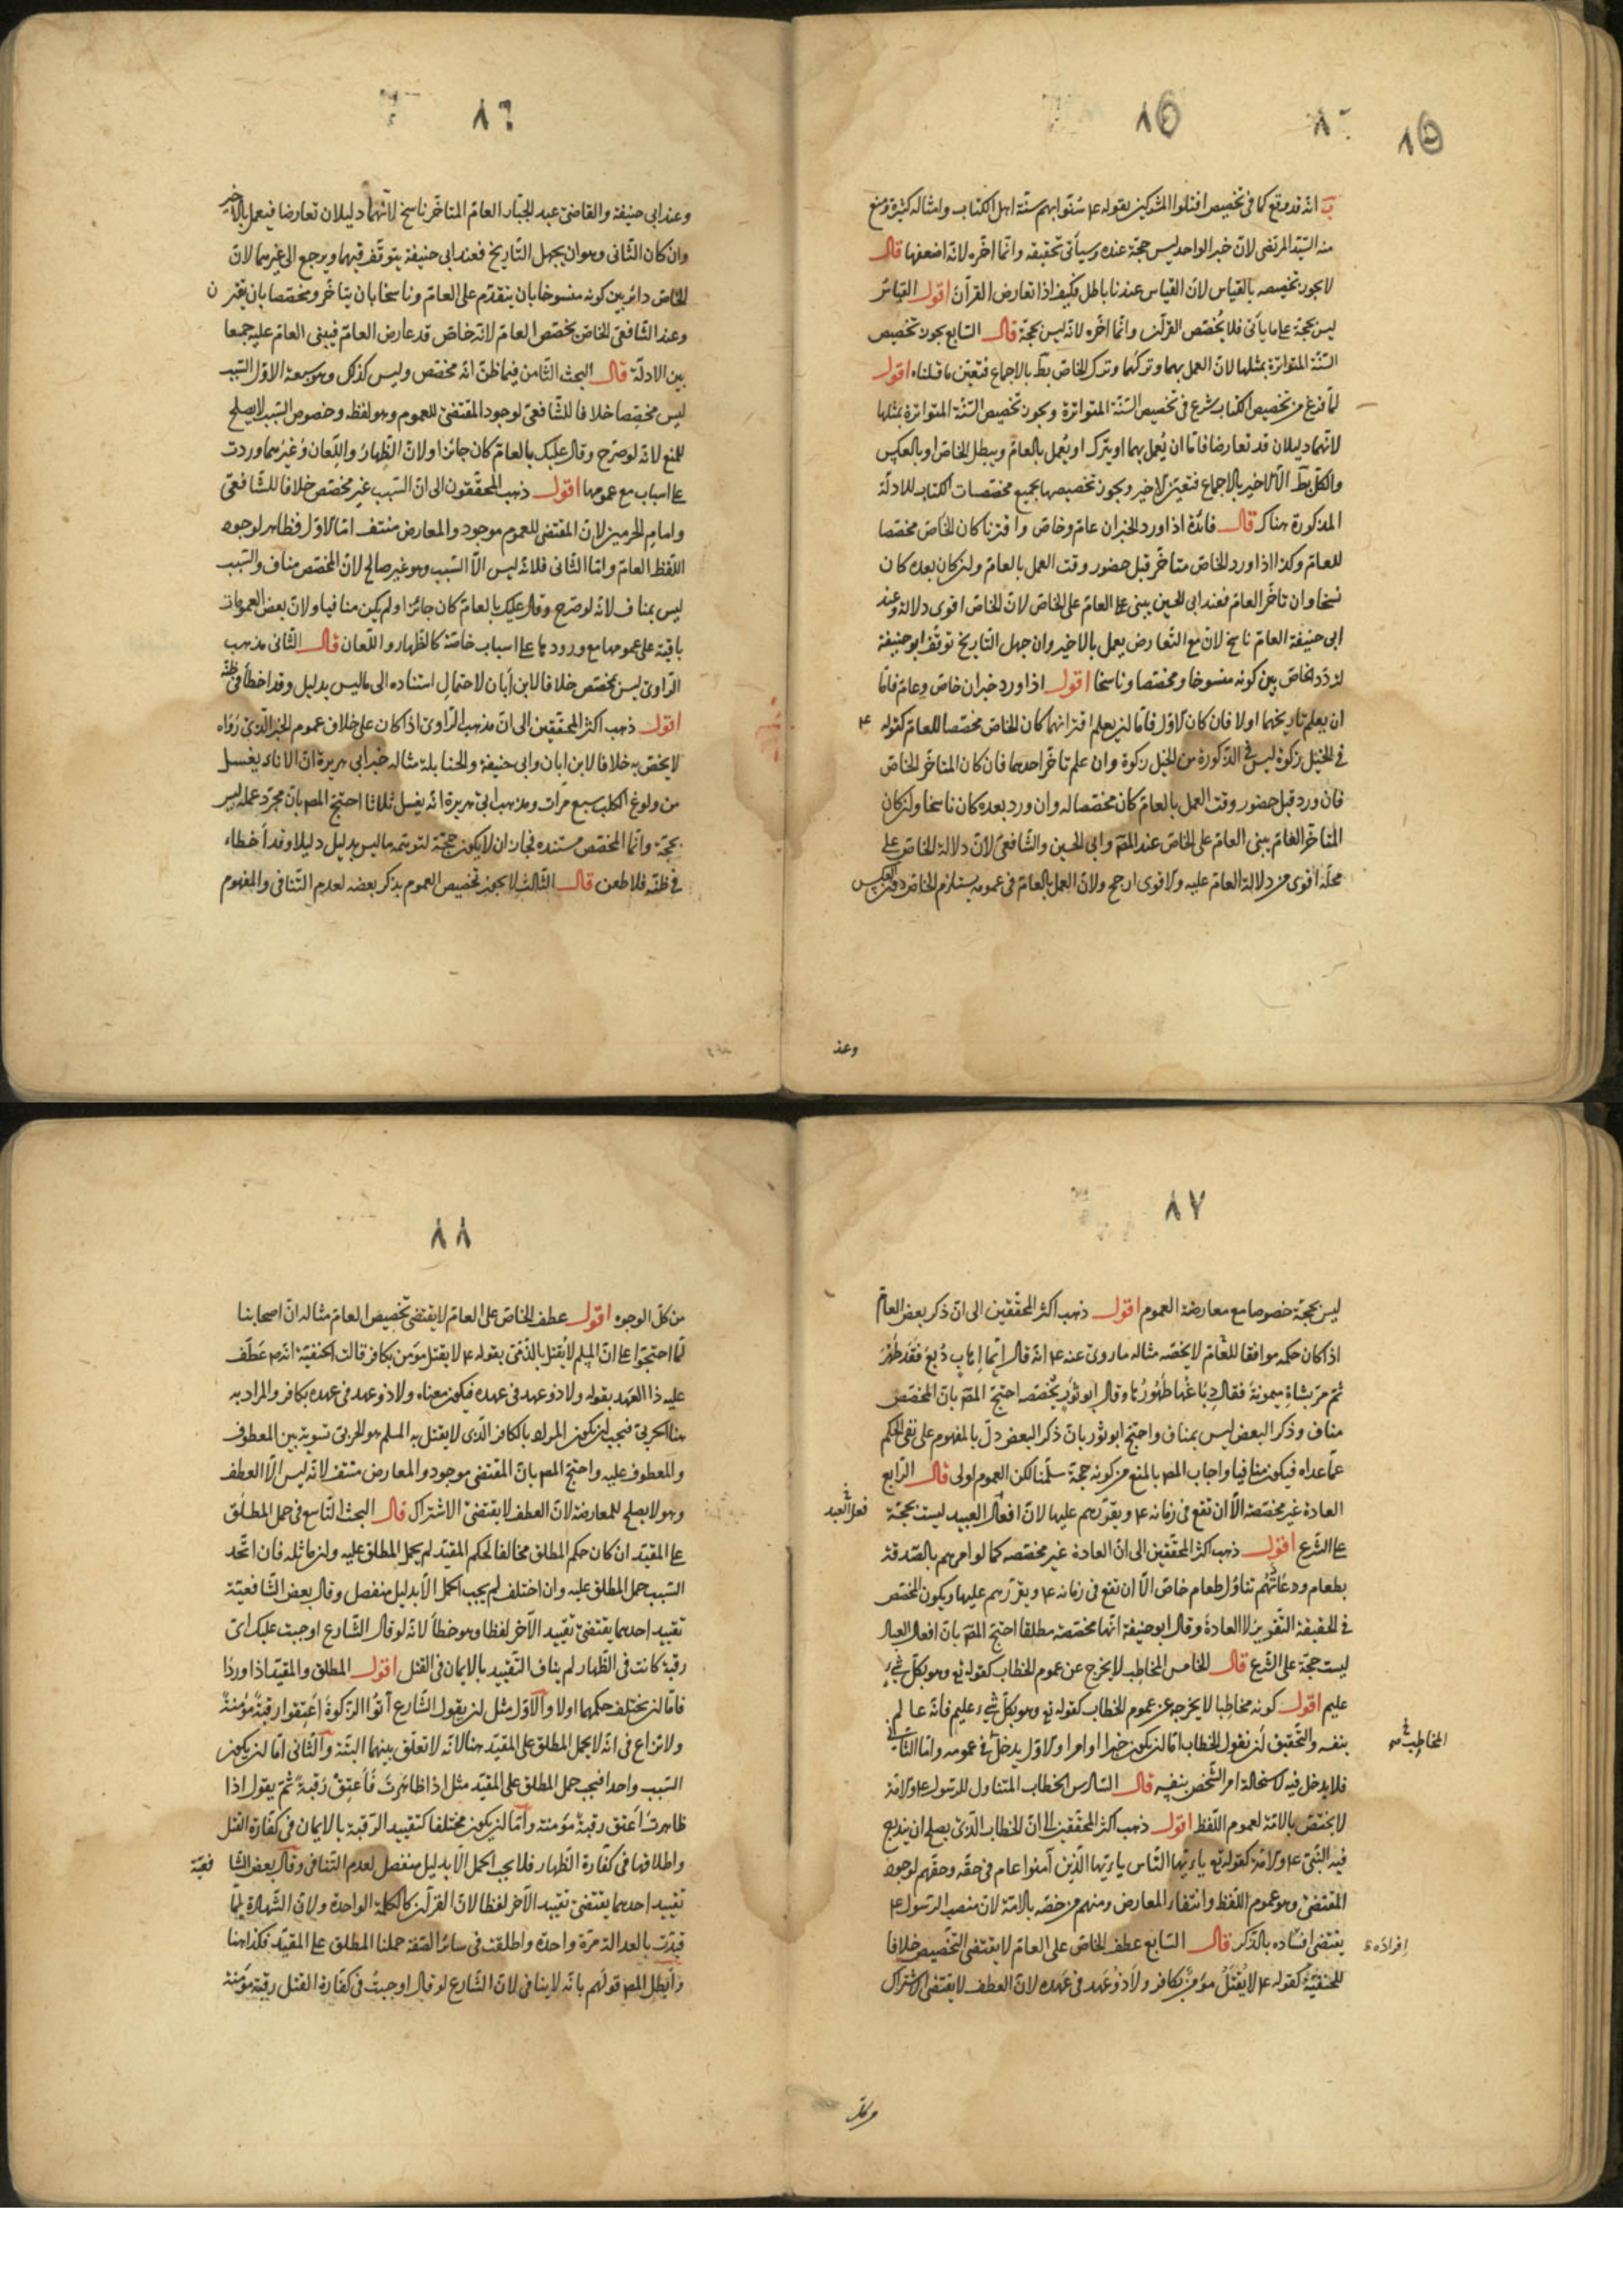 ٨٥
٨٥
ب انه قد وقع كما فى تخصيص اقتلوا المشركين بقوله ع سنوا بهم سنة اهل الكتاب وامثاله كثيرة ومنع
منه السيد المرتضى لان خبر الواحد ليس حجة عنده وسيأتى تحقيقه وانما اخره لانه اضعفها قال
لا يجوز تخصيصه بالقياس لان القياس عندنا باطل فكيف اذا تعارض القرآن اقول القياس
ليس بحجة على ما يأتى فلا يخصص القرآن وانما اخره لانه ليس بحجة قال السابع يجوز تخصيص
السنة المتواترة بمثلها لان العمل بهما وتركهما وترك الخاص بط بالاجماع فتعين ما قلناه اقول
لما فرغ من تخصيص الكتاب شرع فى تخصيص السنة المتواترة ويجوز تخصيص السنة المتواترة بمثلها
لانهما دليلان قد تعارضا فاما ان يعمل بهما او يترك او يعمل بالعام ويبطل الخاص او بالعكس
والكل بط الا الاخير بالاجماع فتعين الاخير ويجوز تخصيصها بجميع مخصصات الكتاب للادلة
المذكورة هناك قال فائدة اذا ورد الخبران عام وخاص واقترنا كان الخاص مخصصا
للعام وكذا اذا ورد الخاص متاخر قبل حضور وقت العمل بالعام ولن كان بعده كان
نسخا وان تاخر العام فعند ابى الحسين يبنى على العام على الخاص لان الخاص اقوى دلالة وعند
ابى حنيفة العام ناسخ لان مع التعارض يعمل بالاخير وان جهل التاريخ توقف ابو حنيفة
لتردد الخاص بين كونه منسوخا ومخصصا وناسخا اقول اذا ورد خبران خاص وعام فاما
ان يعلم تاريخهما اولا فان كان الاول فاما لن يعلم اقترانهما كان الخاص مخصصا للعام كقوله ع
فى الخيل زكوة ليس فى الذكورة من الخيل زكوة وان علم تاخر احدهما فان كان المتاخر الخاص
فان ورد قبل حضور وقت العمل بالعام كان مخصصا له وان ورد بعده كان ناسخا ولن كان
المتاخر العام يبنى العام على الخاص عند المص وابى الحسين والشافعى لان دلالة الخاص على
محله اقوى من دلالة العام عليه والاقوى ارجح ولان العمل بالعام فى عمومه يستلزم الخاص دون العكس
وعند
٨٦
وعند ابى حنيفة والقاضى عبد الجبار العام المتاخر ناسخ لانهما دليلان تعارضا فيعمل بالاخير
وان كان الثانى وهو ان يجهل التاريخ فعند ابى حنيفة يتوقف فيهما ويرجع الى غيرهما لان
الخاص دائر بين كونه منسوخا بان يتقدم على العام وناسخا بان يتاخر ومخصصا بان يقترن
وعند الشافعى الخاص يخصص العام لانه خاص قد عارض العام فيبنى العام عليه جمعا
بين الادلة قال البحث الثامن فيما ظن انه مخصص وليس كذلك وهو سبعة الاول السبب
ليس مخصصا خلافا للشافعى لوجود المقتضى للعموم وهو لفظه وخصوص السبب لا يصلح
للمنع لانه لو صرح وقال عليك بالعام كان جائزا ولان الظهار واللعان وغيرهما وردت
على اسباب مع عمومها اقول ذهب المحققون الى ان السبب غير مخصص خلافا للشافعى
وامام الحرمين لان المقتضى للعموم موجود والمعارض منتف اما الاول فظاهر لوجود
اللفظ العام واما الثانى فلانه ليس الا السبب وهو غير صالح لان المخصص مناف والسبب
ليس بمناف لانه لو صرح وقال عليك بالعام كان جائزا ولم يكن منافيا ولان بعض العمومات
باقية على عمومها مع ورودها على اسباب خاصة كالظهار واللعان قال الثانى مذهب
الراوى ليس بمخصص خلافا لابن أبان لاحتمال استناده الى ما ليس بدليل وقد اخطأ فى ظنه
اقول ذهب اكثر المحققين الى ان مذهب الراوى اذا كان على خلاف عموم الخبر الذى رواه
لا يخص به خلافا لابن ابان وابى حنيفة والحنابلة مثاله خبر ابى هريرة ان الاناء يغسل
من ولوغ الكلب سبع مرات ومذهب ابى هريرة انه يغسل ثلاثا احتج المص بان مجرد عمله ليس
بحجة وانما المخصص مستنده فجاز ان لا يكون حجة لتوهمه ما ليس بدليل دليلا وقد أخطاء
فى ظنه فلا طعن قال الثالث لا يجوز تخصيص العموم بذكر بعضه لعدم التنافى والمفهوم
٨٧
ليس بحجة خصوصا مع معارضة العموم اقول ذهب اكثر المحققين الى ان ذكر بعض العام
اذا كان حكمه موافقا للعام لا يخصه مثاله ما روى عنه ع انه قال ايما اهاب دبغ فقد طهر
ثم مر بشاة ميمونة فقال دباغها طهورها وقال ابو ثور يخصصه احتج المص بان المخصص
مناف وذكر البعض ليس بمناف واحتج ابو ثور بان ذكر البعض دل بالمفهوم على نفى الحكم
عما عداه فيكون منافيا واجاب المص بالمنع من كونه حجة سلمنا لكن العموم اولى قال الرابع
العادة غير مخصصة الا ان تقع فى زمانه ع ويقررهم عليها لان افعال العبيد ليست بحجة
فعل العبد
على الشرع اقول ذهب اكثر المحققين الى ان العادة غير مخصصه كما لو امرهم بالصدقة
بطعام وعادتهم تناول طعام خاص الا ان تقع فى زمانه ع ويقررهم عليها ويكون المخصص
فى الحقيقة التقرير لا العادة وقال ابو حنيفة انها مخصصة مطلقا احتج المص بان افعال العباد
ليست حجة على الشرع قال الخامس المخاطب لا يخرج عن عموم الخطاب كقوله تع وهو بكل شىء
عليم اقول كونه مخاطبا لا يخرجه عن عموم الخطاب كقوله تع وهو بكل شىء عليم فانه عالم
بنفسه والتحقيق لن نقول الخطاب اما لن يكون خبرا او امرا والاول يدخل فى عمومه واما الثانى
المخاطب
فلا يدخل فيه لاستحالة امر الشخص بنفسه قال السادس الخطاب المتناول للرسول ع والامة
لا يختص بالامة لعموم اللفظ اقول ذهب اكثر المحققين الى ان الخطاب الذى يصلح ان يندرج
فيه النبى ع والامة كقوله تع يا ايها الناس يا ايها الذين آمنوا عام فى حقه وحقهم لوجود
المقتضى وهو عموم اللفظ وانتفاء المعارض ومنهم من خصه بالامة لان منصب الرسول ع
يقتضى افراده بالذكر قال السابع عطف الخاص على العام لا يقتضى التخصيص خلافا
افراده
للحنفية كقوله ع لا يقتل مؤمن بكافر ولا ذو عهد فى عهده لان العطف لا يقتضى الاشتراك
٨٨
من كل الوجوه اقول عطف الخاص على العام لا يقتضى تخصيص العام مثاله ان اصحابنا
لما احتجوا على ان المسلم لا يقتل بالذمى بقوله ع لا يقتل مؤمن بكافر قالت الحنفية انه ع عطف
عليه ذا العهد بقوله ولا ذو عهد فى عهده فيكون معناه ولا ذو عهد فى عهده بكافر والمراد به
هنا الحربى فيجب لن يكون المراد بالكافر الذى لا يقتل به المسلم هو الحربى تسوية بين المعطوف
والمعطوف عليه واحتج المص بان المقتضى موجود والمعارض منتف لانه ليس الا العطف
وهو لا يصلح للمعارضة لان العطف لا يقتضى الاشتراك قال البحث التاسع فى حمل المطلق
على المقيد ان كان حكم المطلق مخالفا لحكم المقيد لم يحمل المطلق عليه ولن ماثله فان اتحد
السبب حمل المطلق عليه وان اختلف لم يجب الحمل الا بدليل منفصل وقال بعض الشافعية
تقييد احدهما يقتضى تقييد الآخر لفظا وهو خطأ لانه لو قال الشارع اوجبت عليك اى
رقبة كانت فى الظهار لم يناف التقييد بالايمان فى القتل اقول المطلق والمقيد اذا وردا
فاما لن يختلف حكمهما اولا والاول مثل لن يقول الشارع آتوا الزكوة اعتقوا رقبة مؤمنة
ولا نزاع فى انه لا يحمل المطلق على المقيد هنا لانه لا تعلق بينهما البتة والثانى اما لن يكون
السبب واحدا فيجب حمل المطلق على المقيد مثل اذا ظاهرت فأعتق رقبة ثم يقول اذا
ظاهرت اعتق رقبة مؤمنة واما لن يكون مختلفا كتقييد الرقبة بالايمان فى كفارة القتل
واطلاقها فى كفارة الظهار فلا يجب الحمل الا بدليل منفصل لعدم التنافى وقال بعض الشافعية
تقييد احدهما يقتضى تقييد الآخر لفظا لان القرآن كالكلمة الواحدة ولان الشهادة لما
قيدت بالعدالة مرة واحدة واطلقت فى سائر الصفة حملنا المطلق على المقيد فكذا هنا
وأبطل المص قولهم بانه لا ينافى لان الشارع لو قال اوجبت فى كفارة القتل رقبة مؤمنة